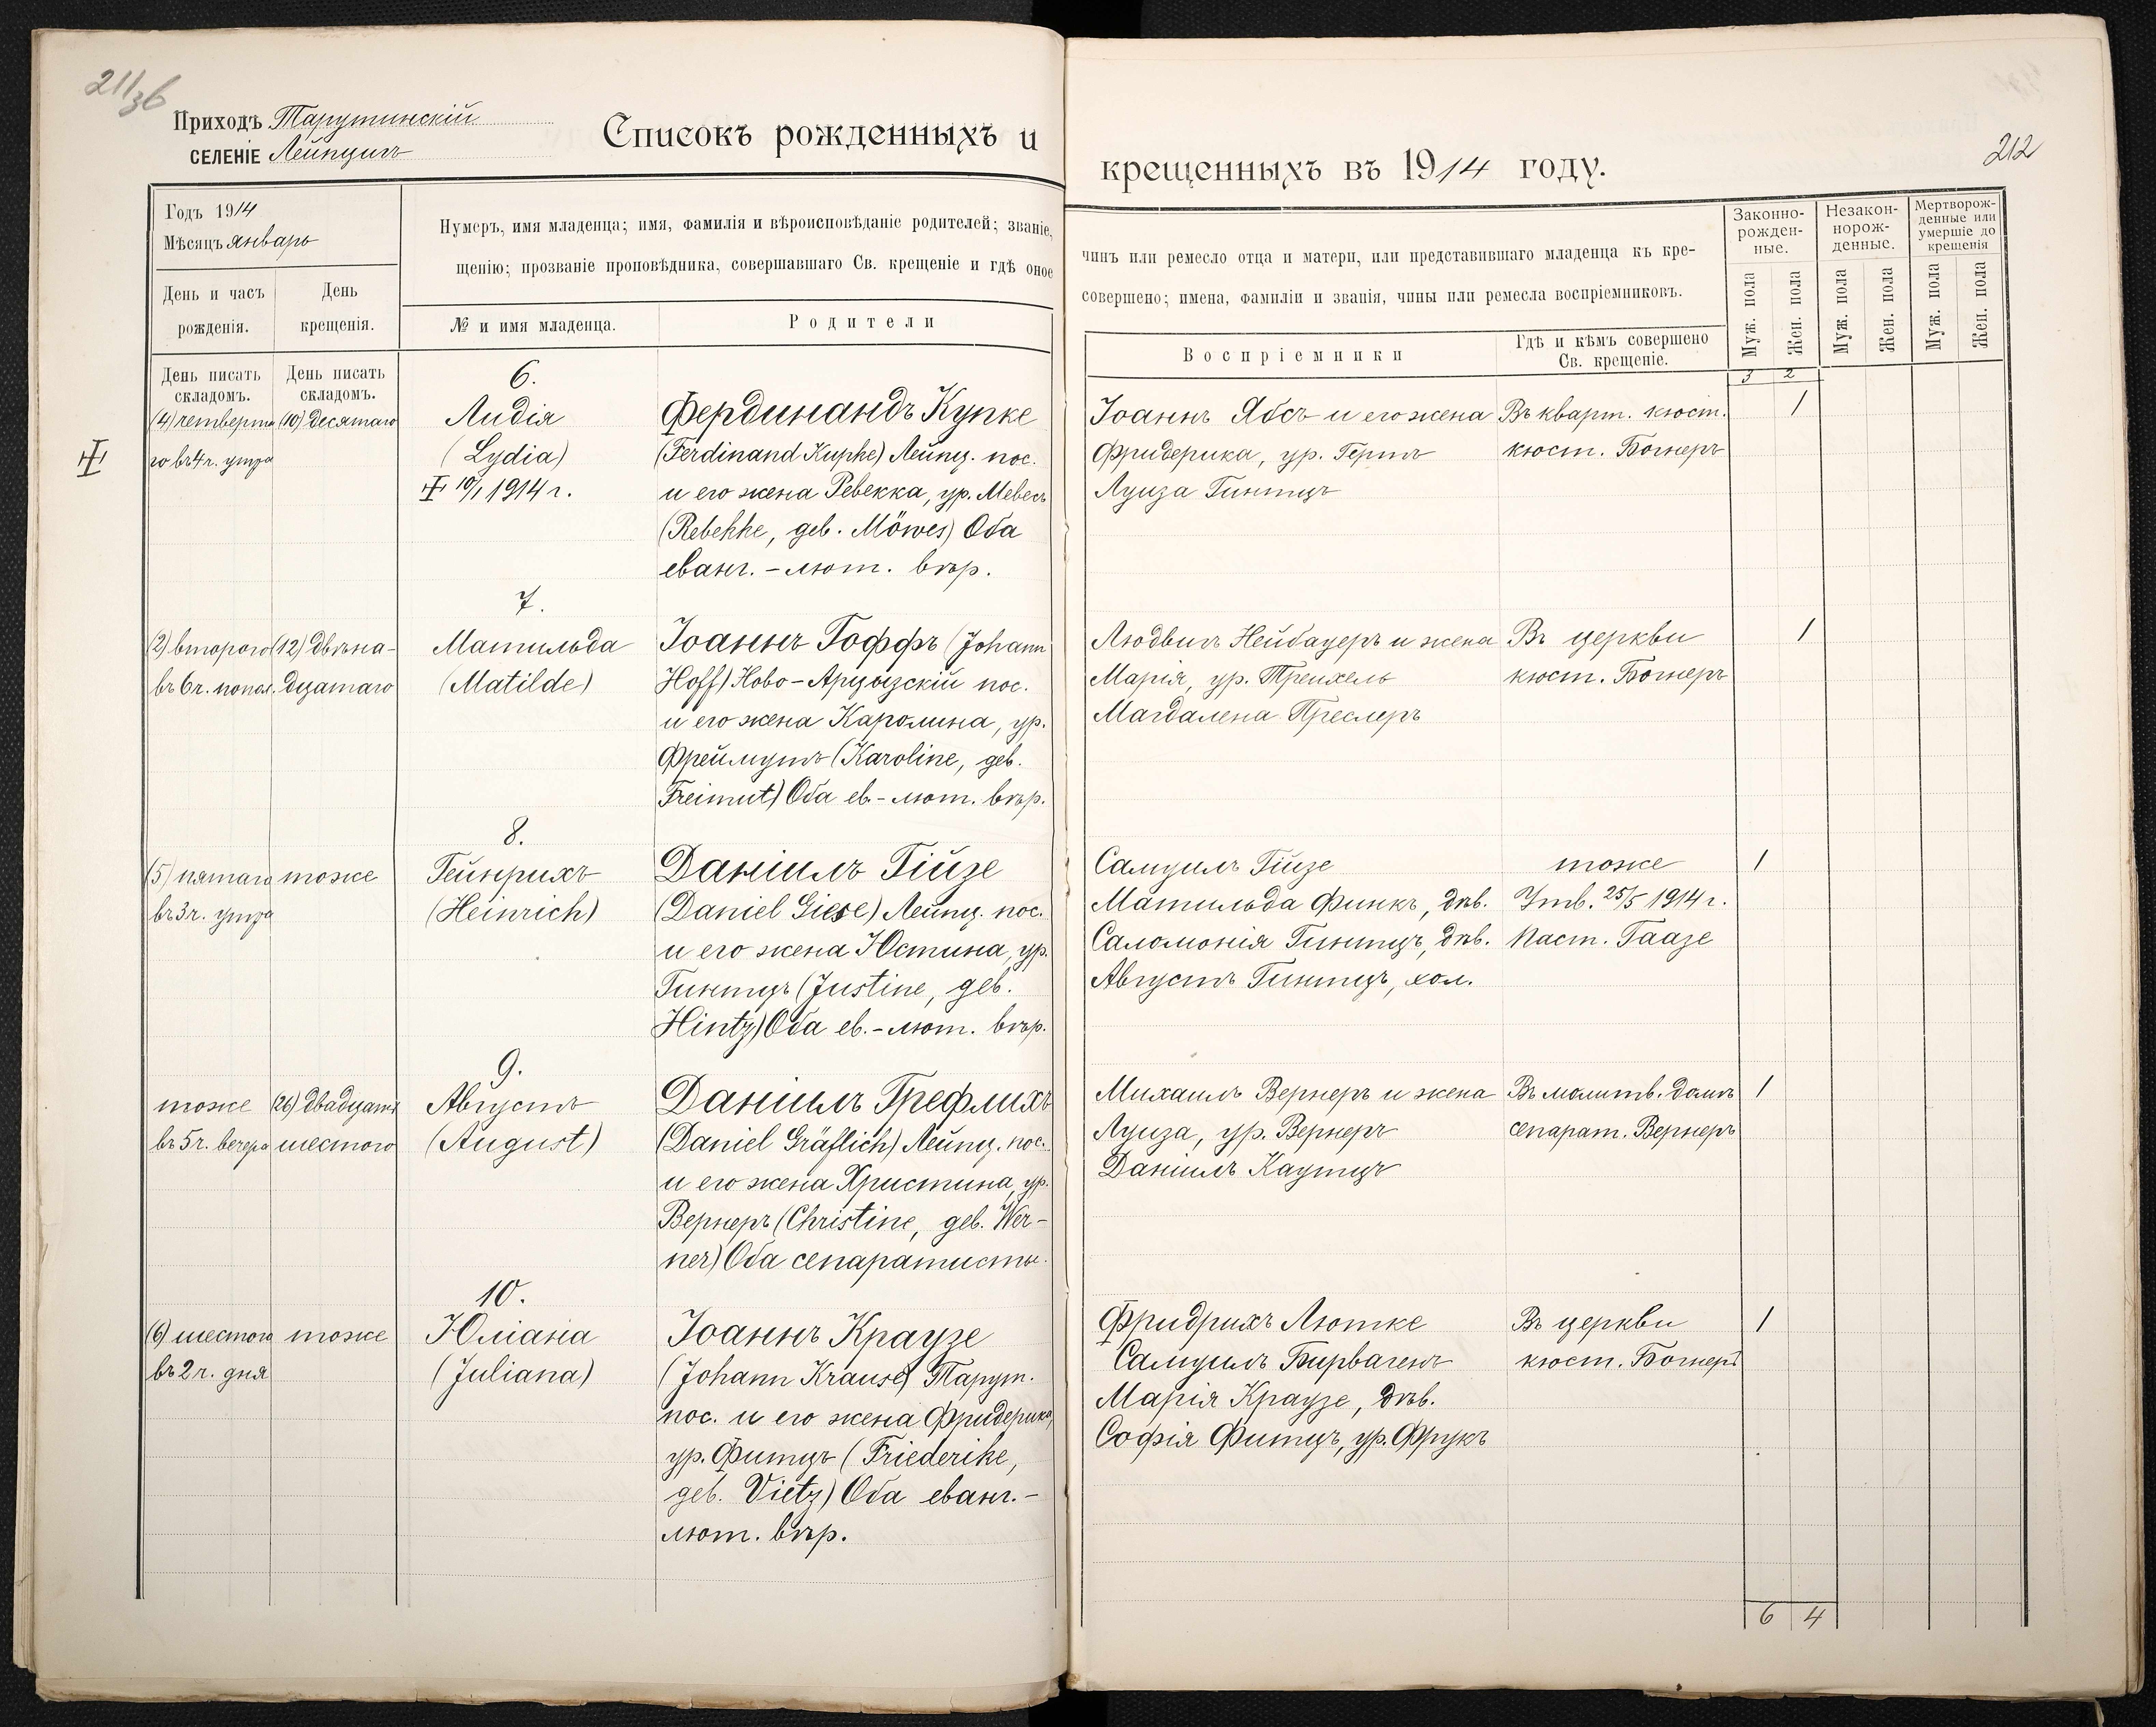 211/зб
Приходъ Тарутинскій
СЕЛЕНІЕ Лейпцигъ
Списокъ рожденныхъ и
крещенныхъ въ 1914 году.
212
Годъ 1914
Мѣсяцъ январь
День и часъ
рожденія.
День
крещенія.
Нумеръ, имя младенца; имя, фамилія и вѣроисповѣданіе родителей; званіе,
щенію; прозваніе проповѣдника, совершавшаго Св. крещеніе и гдѣ оное
№ и имя младенца.
Родители
чинъ или ремесло отца и матери, или представившаго младенца къ кре-
совершено; имена, фамиліи и званія, чины или ремесла воспріемниковъ.
Воспріемники
Гдѣ и кѣмъ совершено
Св. крещеніе.
Законно-
рожден-
ные.
Незакон-
норож-
денные.
Мертворож-
денные или
умершіе до
крещенія
Муж. пола
Жен. пола
Муж. пола
Жен. пола
Муж. пола
Жен. пола
День писать
складомъ.
День писать
складомъ.
3 2
6.
(4) четверта
го въ 4 ч. утра
(10) десятаго
Лидія
(Lydia)
10/I 1914 г.
Фердинандъ Купке
(Ferdinand Kupke) Лейпц. пос.
и его жена Ревекка, ур. Мевесъ
(Rebekke, geb. Möwes) Оба
еванг.-лют. вѣр.
Іоаннъ Ябсъ и его жена
Фридерика, ур. Гертъ
Луиза Гинтцъ
Въ кварт. кюст.
кюст. Богнеръ
1
7.
(2) второго
въ 6 ч. попол.
(12) двѣна-
дцатаго
Матильда
(Matilde)
Іоаннъ Гоффъ (Johann
Hoff) Ново-Арцызскій пос.
и его жена Каролина, ур.
Фреймутъ (Karoline, geb.
Freimut) Оба ев.-лют. вѣр.
Людвигъ Нейбауеръ и жена
Марія, ур. Тренкель
Магдалена Преслеръ
Въ церкви
кюст. Богнеръ
1
8.
(5) пятаго
въ 3 ч. утра
тоже
Гейнрихъ
(Heinrich)
Даніилъ Гійзе
(Daniel Giese) Лейпц. пос.
и его жена Юстина, ур.
Гинтцъ (Justine, geb.
Hintz) Оба ев.-лют. вѣр.
Самуилъ Гійзе
Матильда Финкъ, дѣв.
Саломонія Гинтцъ, дѣв.
Августъ Гинтцъ, хол.
тоже
Утв. 25/5 1914 г.
Паст. Гаазе
1
9.
тоже
въ 5 ч. вечера
(26) двадцать
шестого
Августъ
(August)
Даніилъ Грефлихъ
(Daniel Gräflich) Лейпц. пос.
и его жена Христина, ур.
Вернеръ (Christine, geb. Wer-
ner) Оба сепаратисты.
Михаилъ Вернеръ и жена
Луиза, ур. Вернеръ
Даніилъ Каутцъ
Въ молитв. домѣ
сепарат. Вернеръ
1
10.
(6) шестого
въ 2 ч. дня
тоже
Юліана
(Juliana)
Іоаннъ Краузе
(Johann Krause) Тарут.
пос. и его жена Фридерика,
ур. Фитцъ (Friederike,
geb. Vietz) Оба еванг.-
лют. вѣр.
Фридрихъ Лютке
Самуилъ Бирвагенъ
Марія Краузе, дѣв.
Софія Фитцъ, ур. Фрукъ
Въ церкви
кюст. Богнеръ
1
6 4